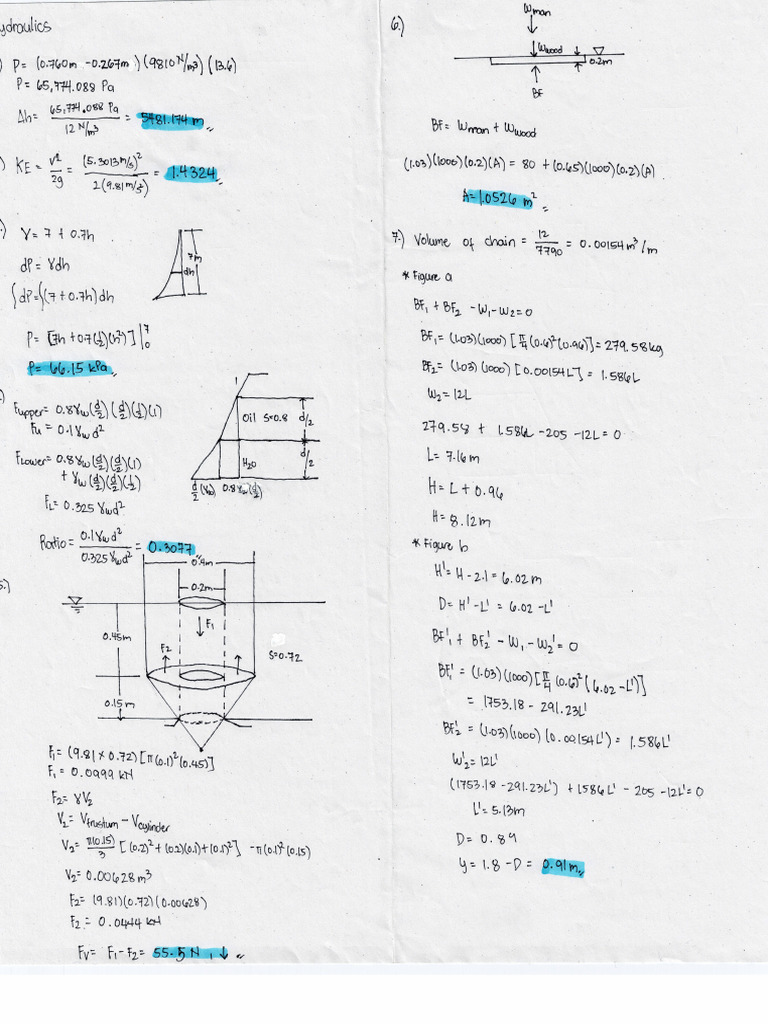 ydraulics
) P= (0.760m - 0.267m)(9810 N/m³)(13.6)
P= 65,774.088 Pa
Δh= 65,774.088 Pa / 12 N/m³ = 5481.174 m
) KE = v²/2g = (5.3013 m/s)² / 2(9.81 m/s²) = 1.4324
.) γ = 7 + 0.7h
dP = γdh
∫dP=∫(7 + 0.7h)dh
P= [7h + 0.7(½)(h²)]|⁷₀
P= 66.15 kPa
7m
dh
.) Fupper = 0.8γw(d/2)(d/2)(½)(1)
Fu = 0.1γw d²
Flower = 0.8γw(d/2)(d/2)(1)
+ γw(d/2)(d/2)(½)
FL = 0.325 γw d²
Ratio = 0.1γw d² / 0.325 γw d² = 0.3077
1
Oil S=0.8
d/2
H2O
d/2
d/2(γw) 0.8γw(d/2)
5.)
0.4m
0.2m
F1
0.45m
F2
S=0.72
0.15m
F1 = (9.81 x 0.72)[π(0.1)²(0.45)]
F1 = 0.0999 kN
F2= γV2
V2 = Vfrustum - Vcylinder
V2 = π(0.15)/3 [(0.2)² + (0.2)(0.1) + (0.1)²] - π(0.1)²(0.15)
V2 = 0.00628 m³
F2= (9.81)(0.72)(0.00628)
F2 = 0.0444 kN
FV = F1 - F2 = 55.5 N, ↓
6.)
Wman
Wwood
0.2m
BF
BF = Wman + Wwood
(1.03)(1000)(0.2)(A) = 80 + (0.65)(1000)(0.2)(A)
A = 1.0526 m²
7.) Volume of chain = 12/7790 = 0.00154 m³/m
* Figure a
BF1 + BF2 - W1 - W2 = 0
BF1 = (1.03)(1000)[π/4(0.6)²(0.96)] = 279.58 kg
BF2 = (1.03)(1000)[0.00154L] = 1.586L
W2 = 12L
279.58 + 1.586L - 205 - 12L = 0
L = 7.16 m
H = L + 0.96
H = 8.12 m
* Figure b
H' = H - 2.1 = 6.02 m
D = H' - L' = 6.02 - L'
BF'1 + BF2' - W1 - W2' = 0
BF1' = (1.03)(1000)[π/4(0.6)²(6.02 - L')]
= 1753.18 - 291.23L'
BF2' = (1.03)(1000)(0.00154L') = 1.586L'
W'2 = 12L'
(1753.18 - 291.23L') + 1.586L' - 205 - 12L' = 0
L' = 5.13 m
D = 0.89
y = 1.8 - D = 0.91 m